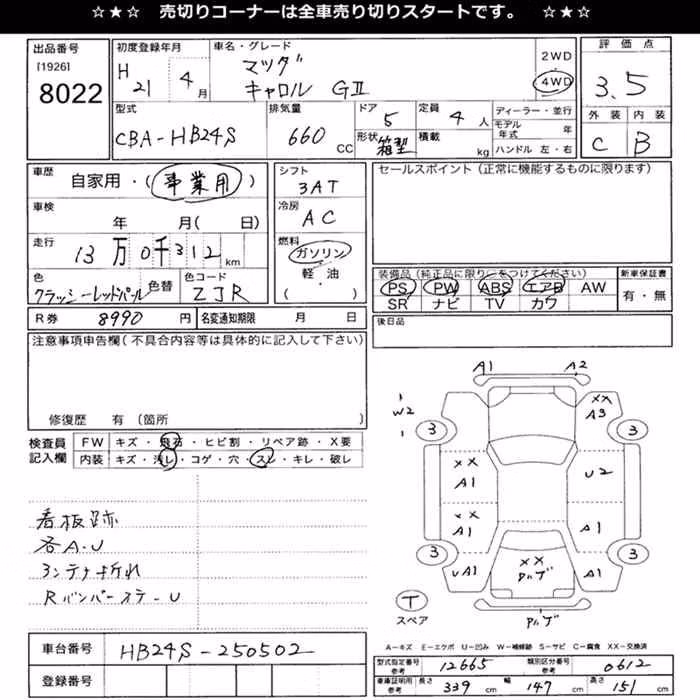 ☆★☆ 売切りコーナーは全車売り切りスタートです。 ☆★☆
出品番号
[1926]
8022
初度登録年月
H 21 4月
車名・グレード
マツダ
キャロル GⅡ
2WD
4WD
評価点
3.5
外装 内装
C B
型式
CBA-HB24S
排気量
660 CC
ドア 5
形状 箱型
定員 4 人
積載 kg
ディーラー・並行
モデル年式 年
ハンドル 左・右
車歴
自家用・(事業用)
車検
年 月( 日)
走行
13万0千312 km
色
クラッシーレッドパール
色替
色コード
ZJR
シフト
3AT
冷房
AC
燃料
ガソリン
軽・油
( )
セールスポイント(正常に機能するものに限ります)
装備品(純正品に限り○をつけてください)
PS PW ABS エアB AW
SR ナビ TV カワ
新車保証書
有・無
R券 8990 円 名変通知期限 月 日
後日品
注意事項申告欄(不具合内容等は具体的に記入して下さい)
修復歴 有(箇所 )
検査員
記入欄
FW キズ・飛石・ヒビ割・リペア跡・X要
内装 キズ・汚レ・コゲ・穴・スレ・キレ・破レ
看板跡
各A.U
Rバンパーステ-U
A1 A2
W2
XX
A3
3 3
XX
A1
U2
XX
A1
A1
3 3
UA1
XX
A1
T
スペア
A-キズ E-エクボ U-凹み W-補修跡 S-サビ C-腐食 XX-交換済
車台番号 HB24S-250502
登録番号
型式指定番号 参考 12665
類別区分番号 参考 0612
車庫証明用 参考 長さ 339 幅 147 高さ 151 cm